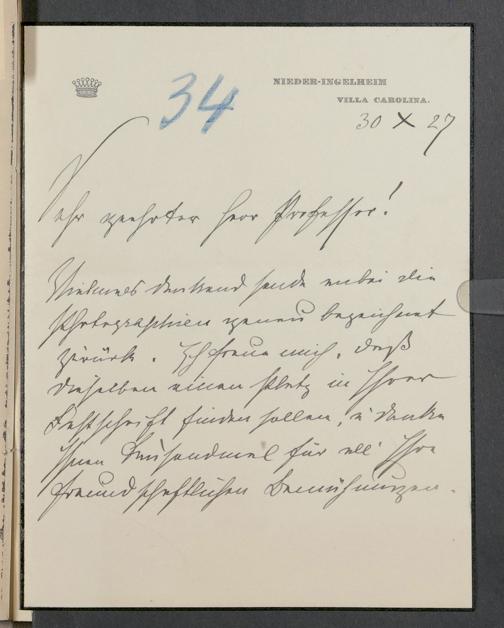 34
NIEDER-INGELHEIM
VILLA CAROLINA.
30 X 27
Sehr geehrter Herr Professor!
Vielmals dankend sende anbei die
Photographien genau bezeichnet
zurück. Ich freue mich, daß
dieselben einen Platz in Ihrer
Festschrift finden sollen, u danke
Ihnen tausendmal für all' Ihre
freundschaftlichen Bemühungen.